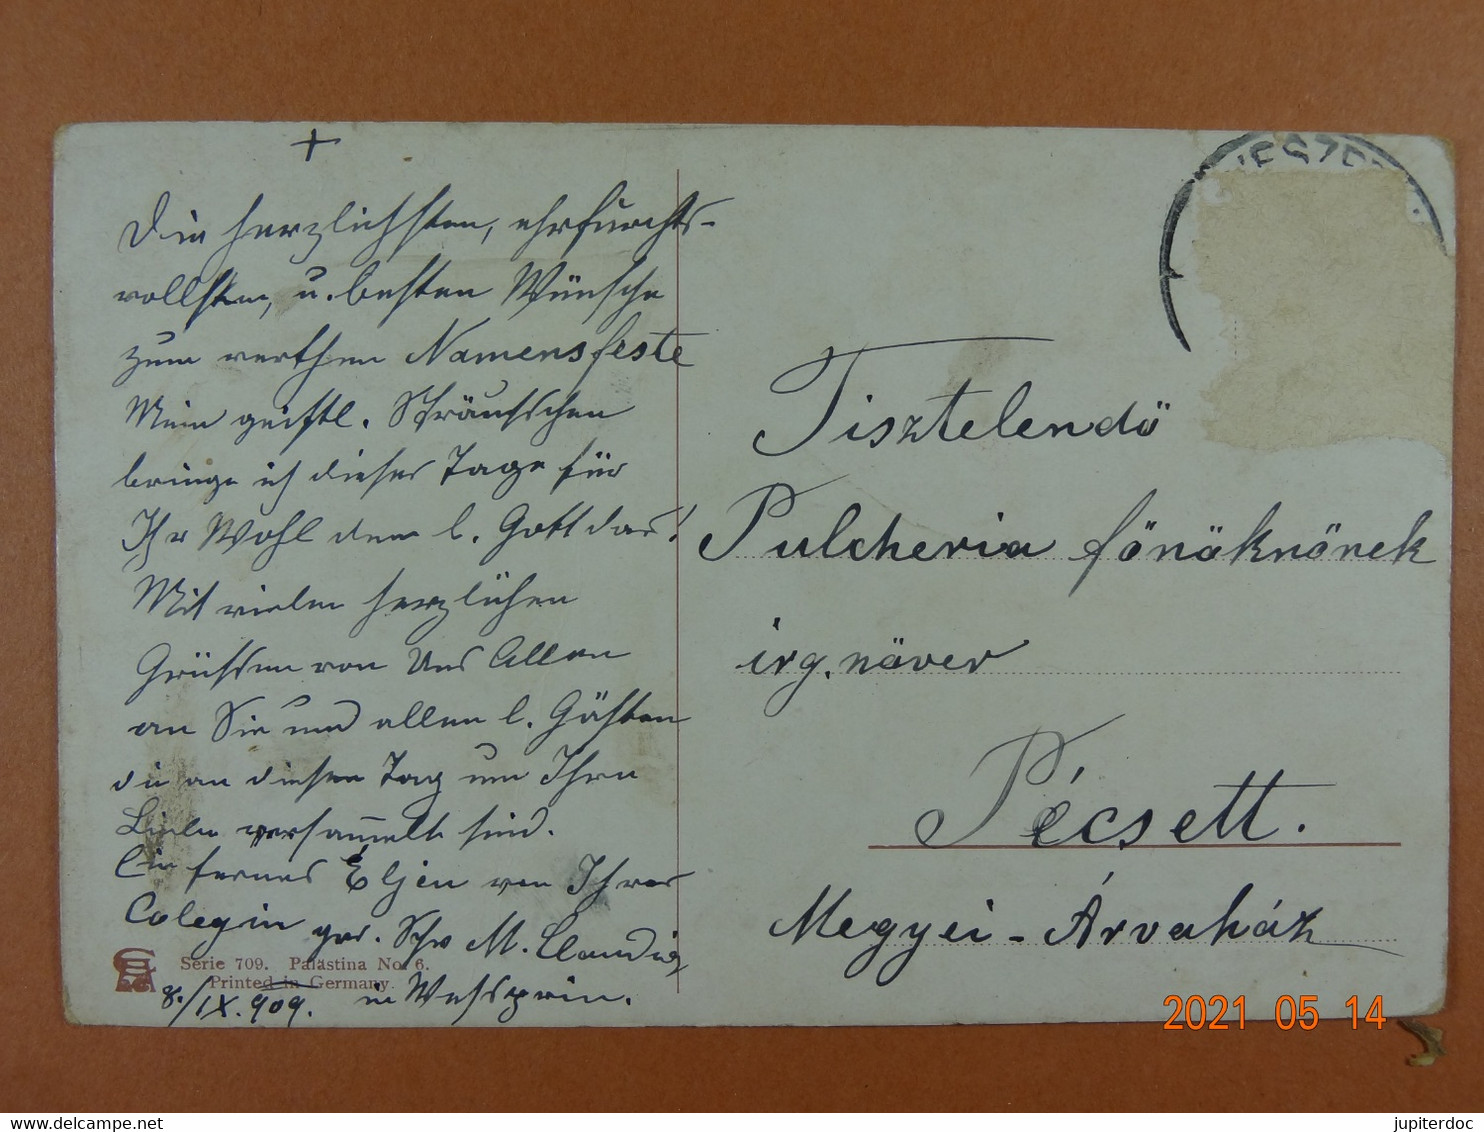 +
Die herzlichsten, ehrfurchts-
vollsten, u. besten Wünsche
zum werthen Namensfeste
Mein geistl. Sträußchen
bringe ich dieser Tage für
Ihr Wohl dem l. Gott dar!
Mit vielen herzlichen
Grüßen von Uns Allen
an Sie und allen l. Gästen
die an diesen Tag um Ihre
Liebe versammelt sind.
Ein fernes Éljen von Ihrer
Colegin Schw M. Claudia
in Wessprin.
8./IX. 909.
Serie 709. Palästina No. 6.
Printed in Germany.
Tisztelendö
Pulcheria fönöknönek
irg. növer
Pécsett.
Megyei-Árvaház
2021 05 14
delcampe.net
jupiterdoc